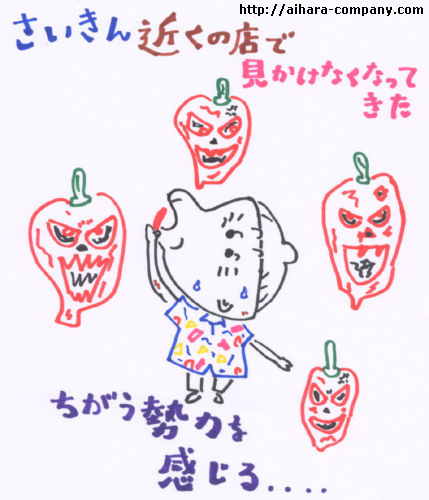 http://aihara-company.com
さいきん近くの店で
見かけなくなって
きた
ちがう勢力を
感じる....